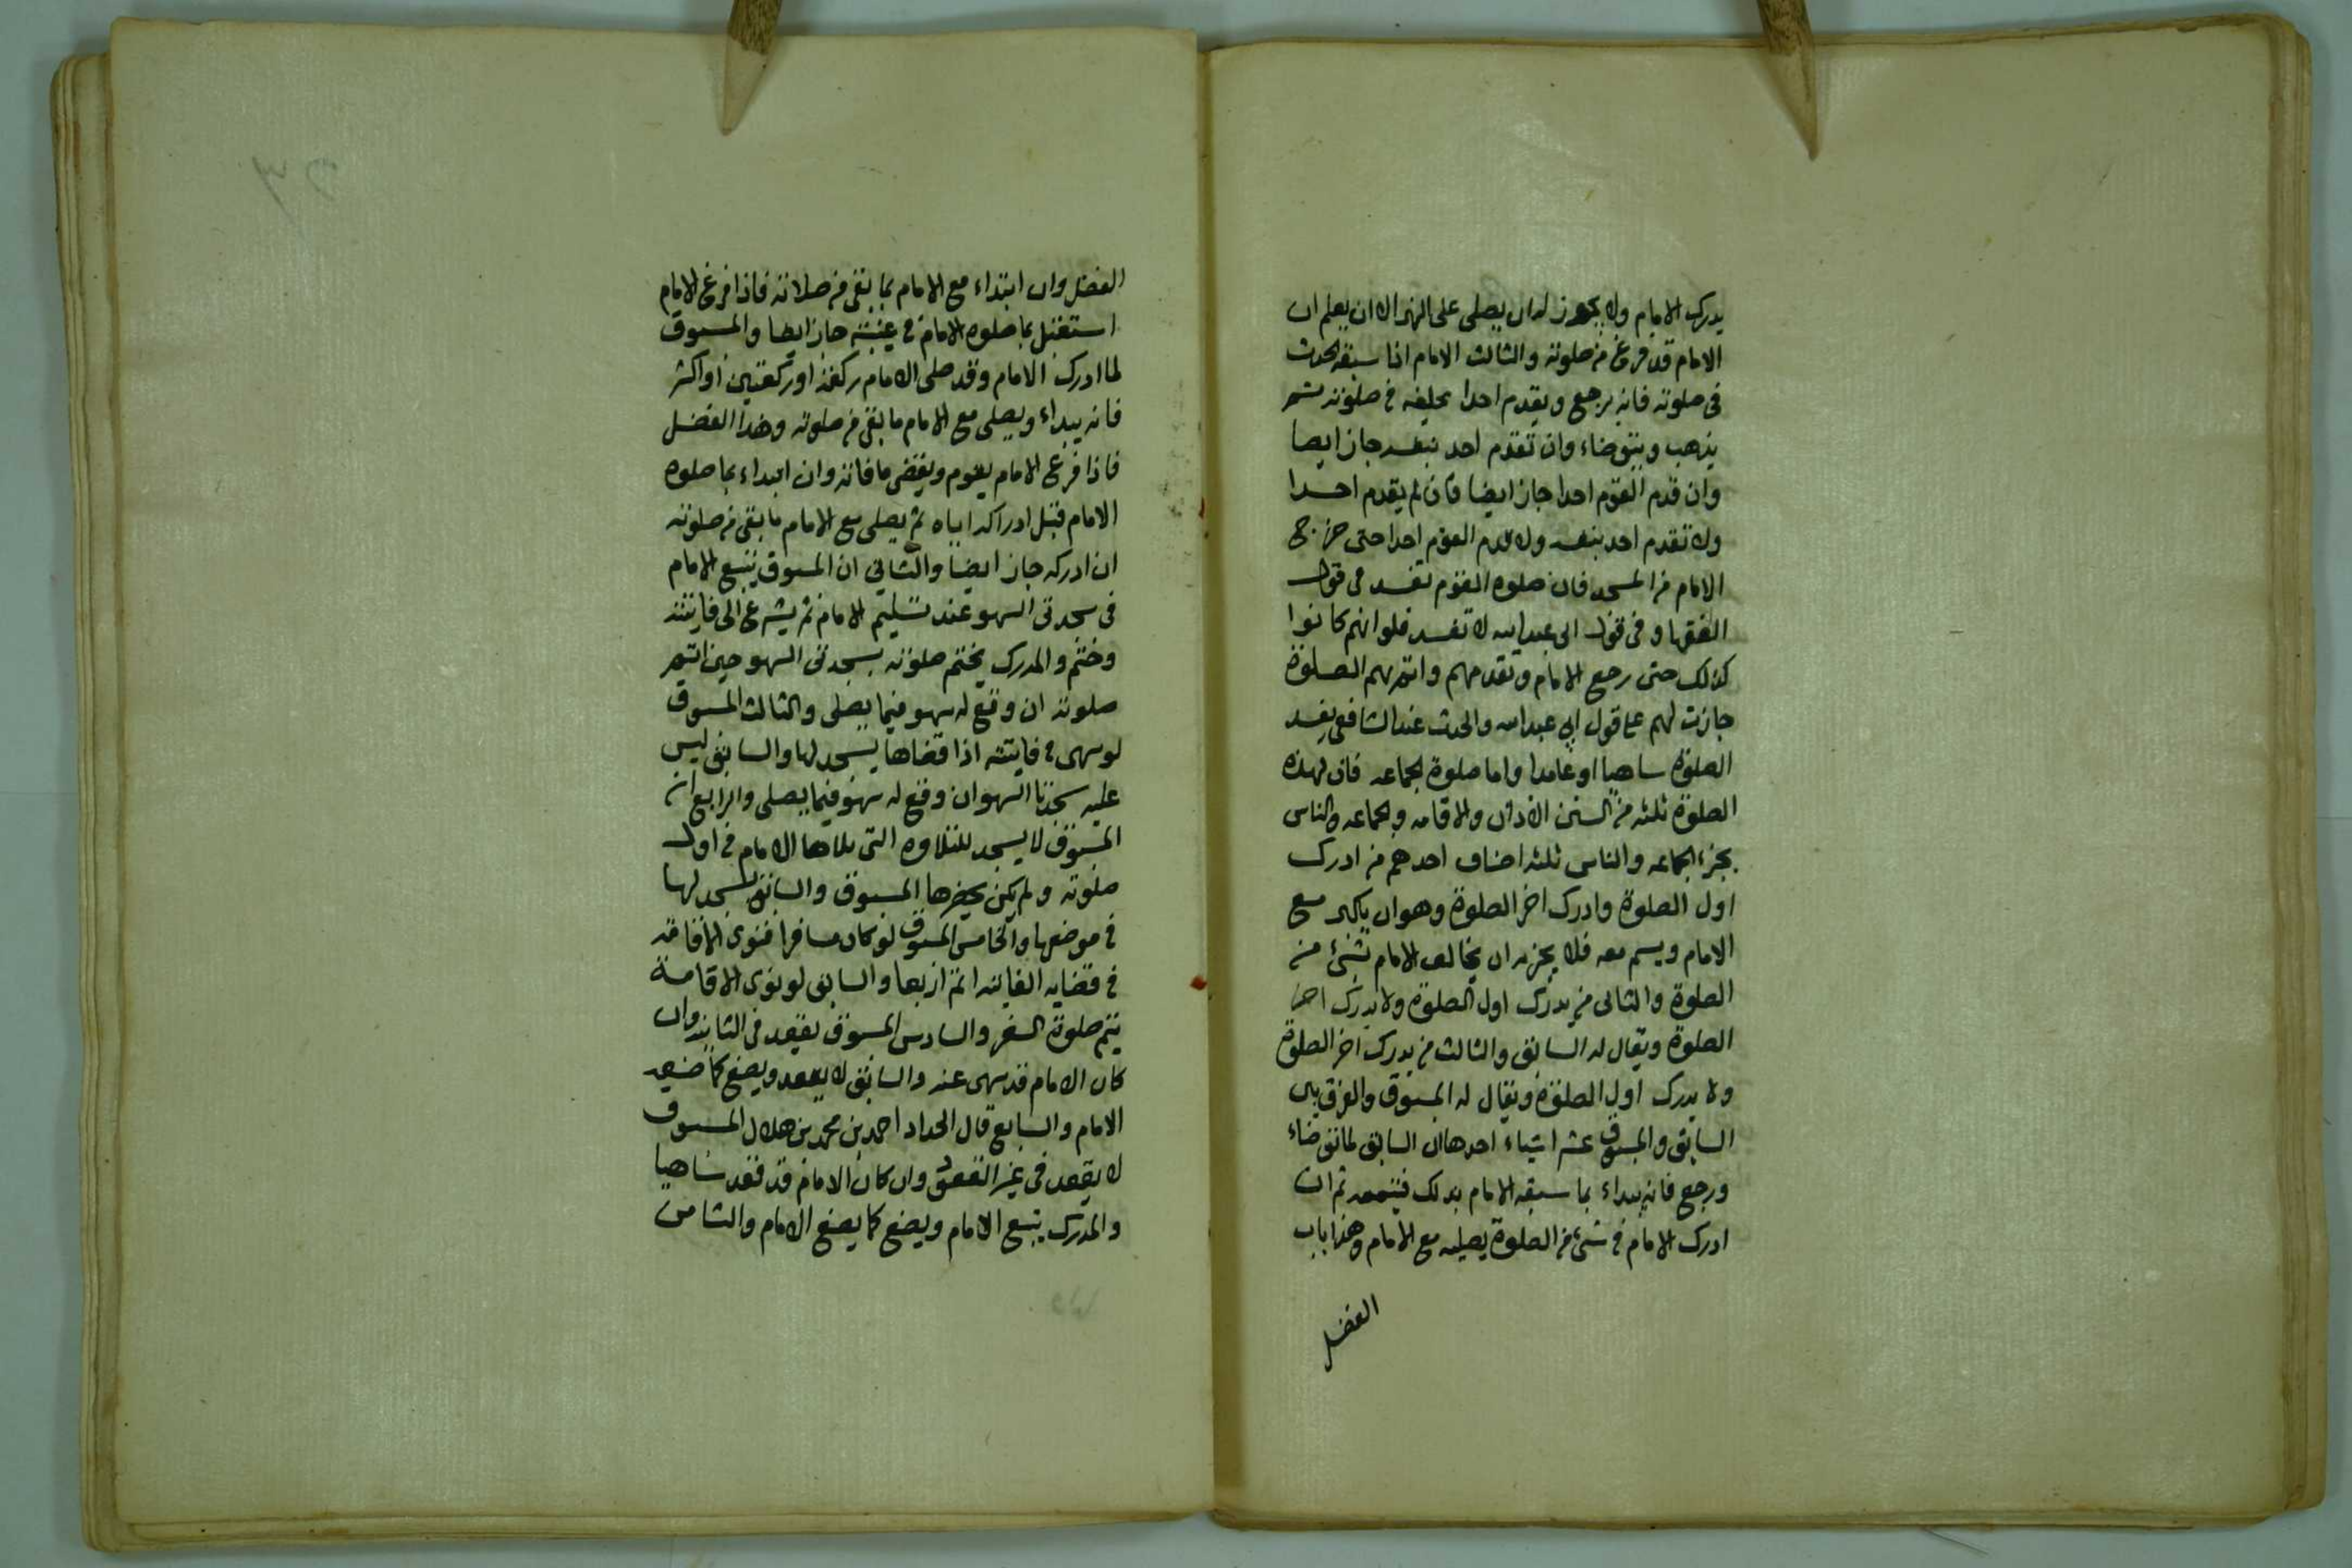 يدرك الامام ولا يجوز له ان يصلى على النهر الا ان يعلم ان
الامام قد فرغ من صلوته والثالث الامام اذا سبقه الحدث
فى صلوته فانه يرجع ويقدم احدا يخلفه فى صلوته ثم
يذهب ويتوضاء وان تقدم احد بنفسه جاز ايضا
وان قدم القوم احدا جاز ايضا فان لم يقدم احدا
ولا تقدم احد بنفسه ولا قدم القوم احدا حتى خرج
الامام من المسجد فان صلوه القوم تفسد فى قول
الفقها وفى قول ابى عبد الله لا تفسد فلو انهم كانوا
كذلك حتى رجع الامام وتقدمهم واتم بهم الصلوة
جازت لهم على قول ابي عبد الله والحدث عند الشافعى يفسد
الصلوة ساهيا او عامدا واما صلوة الجماعه فان لهذه
الصلوة ثلثه من السنن الاذان والاقامه والجماعه والناس
بجزء الجماعه والناس ثلثه اصناف احدهم من ادرك
اول الصلوة وادرك اخر الصلوة وهو ان يكبر مع
الامام ويسلم معه فلا يجزيه ان يخالف الامام بشئ من
الصلوة والثانى من يدرك اول الصلوة ولا يدرك اخر
الصلوة ويقال له السابق والثالث من يدرك اخر الصلوة
ولا يدرك اول الصلوة ويقال له المسبوق والفرق بين
السابق والمسبوق عشر اشياء احدها ان السابق لما توضاء
ورجع فانه يبداء بما سبقه الامام بذلك فيتمه ثم ان
ادرك الامام فى شئ من الصلوة يصليه مع الامام وهذا باب
الفضل
الفضل وان ابتداء مع الامام بما بقى من صلاته فاذا فرغ الامام
استغل بما صلوه الامام فى غيبته جاز ايضا والمسبوق
لما ادرك الامام وقد صلى الامام ركعة او ركعتين او اكثر
فانه يبداء ويصلى مع الامام ما بقى من صلوته وهذا الفضل
فاذا فرغ الامام يقوم ويقضى ما فاته وان ابتداء بما صلوه
الامام قبل ادراكه اياه ثم يصلى مع الامام ما بقى من صلوته
ان ادركه جاز ايضا والثاني ان المسبوق يتبع الامام
فى سجدتى السهو عند تسليم الامام ثم يشرع الى فايتته
وختم والمدرك يختم صلوته بسجدتى السهو حين اتم
صلوته ان وقع له سهو فيما يصلى والثالث المسبوق
لو سهى فى فايتته اذا قضاها يسجد لها والسابق ليس
عليه سجدتا السهو ان وقع له سهو فيما يصلى والرابع ان
المسبوق لا يسجد للتلاوه التى تلاها الامام فى اول
صلوته ولم يكن يحضرها المسبوق والسابق يسجد لها
فى موضعها والخامس المسبوق لو كان مسافرا فنوى الاقامه
فى قضايه الفايته اتم اربعا والسابق لو نوى الاقامة
يتم صلوة السفر والسادس المسبوق يقعد فى الثانية وان
كان الامام قد سهى عنه والسابق لا يقعد ويصنع كما صنعه
الامام والسابع قال الحداد احمد بن محمد بن هلال المسبوق
لا يقعد فى غير القعود وان كان الامام قد قعد ساهيا
والمدرك يتبع الامام ويصنع كما يصنع الامام والثامن